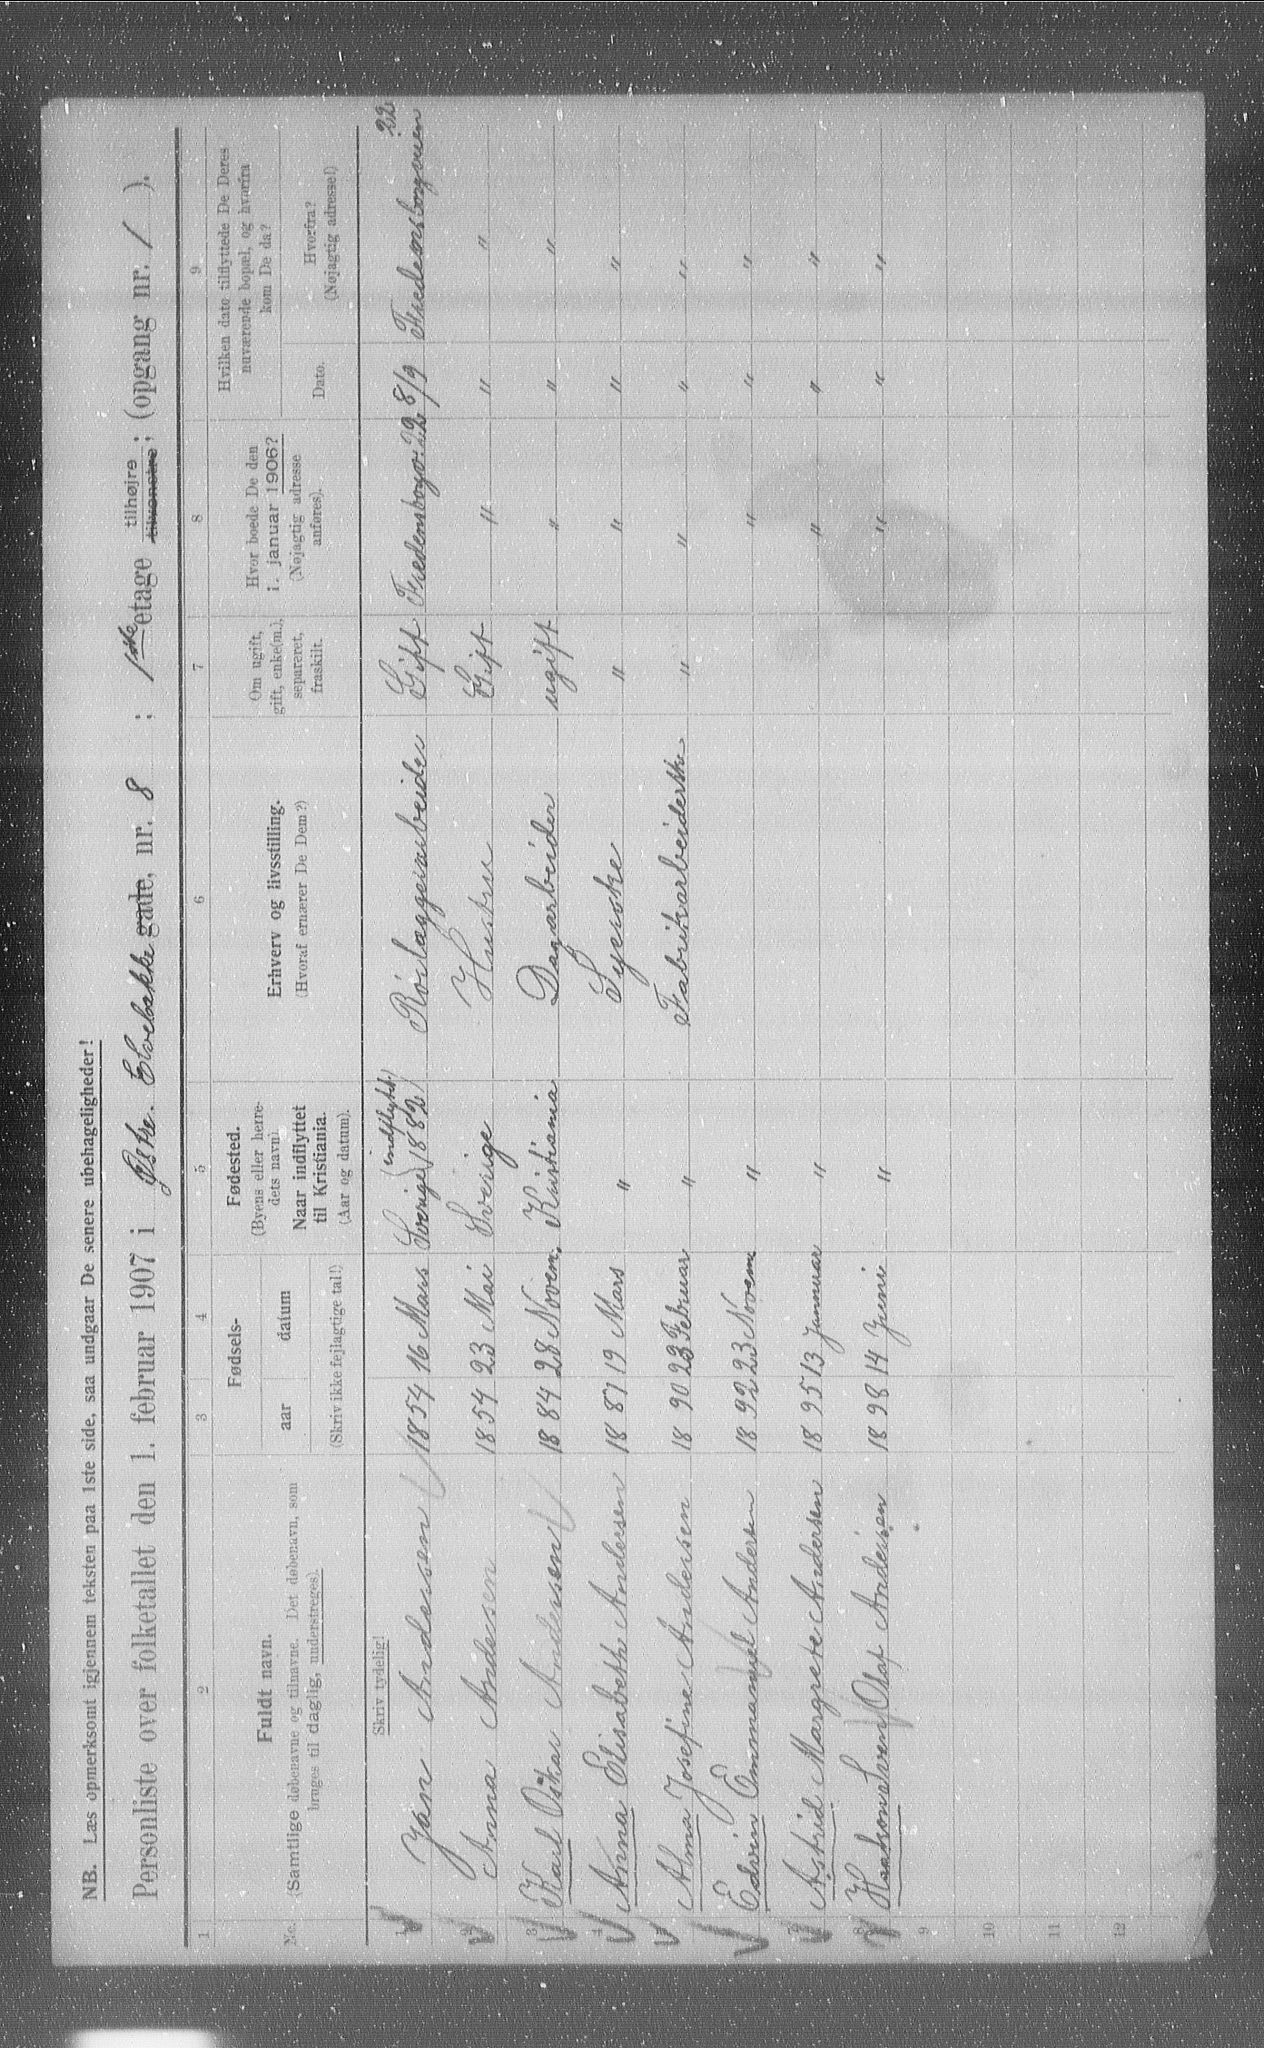 NB. Læs opmerksomt igjennem teksten paa 1ste side, saa undgaar De senere ubehageligheder!
Personliste over folketallet den 1. februar 1907 i Østre Elvebakke gade, nr. 8 ; 1ste etage tilhøjre tilvenstre; (opgang nr. 1 ).
1 2 3 4 5 6 7 8 9
No. Fuldt navn. (Samtlige døbenavne og tilnavne. Det døbenavn, som bruges til daglig, understreges). Fødsels- aar datum (Skriv ikke fejlagtige tal!) Fødested. (Byens eller herredets navn). Naar indflyttet til Kristiania. (Aar og datum). Erhverv og livsstilling. (Hvoraf ernærer De Dem?) Om ugift, gift, enke(m.), separeret, fraskilt. Hvor boede De den 1. januar 1906? (Nøjagtig adresse anføres). Hvilken dato tilflyttede De Deres nuværende bopæl, og hvorfra kom De da? Dato. Hvorfra? (Nøjagtig adresse!)
Skriv tydelig!
1 Jan Anderssen 1854 16 Mars Sverige (indflytt. 1882) Rörlæggeiarbeider Gift Fredensborgv. 22 8/9 Fredensborgveien 22
2 Anna Andersen 1854 23 Mai Sverige Hustru Gift " " "
3 Karl Oskar Andersen 1884 28 Novem. Kristiania Dagarbeider ugift " " "
4 Anna Elisabeth Andersen 1887 19 Mars " Syerske " " " "
5 Alma Josefine Andersen 1890 23 Februar " Fabrikarbeiderske " " " "
6 Edvin Emmanuel Andersen 1892 23 Novem. " " " "
7 Astrid Margrete Andersen 1895 13 Jannuar " " " "
8 Haakon Sven Olaf Andersen 1898 14 Juni " " " "
9
10
11
12